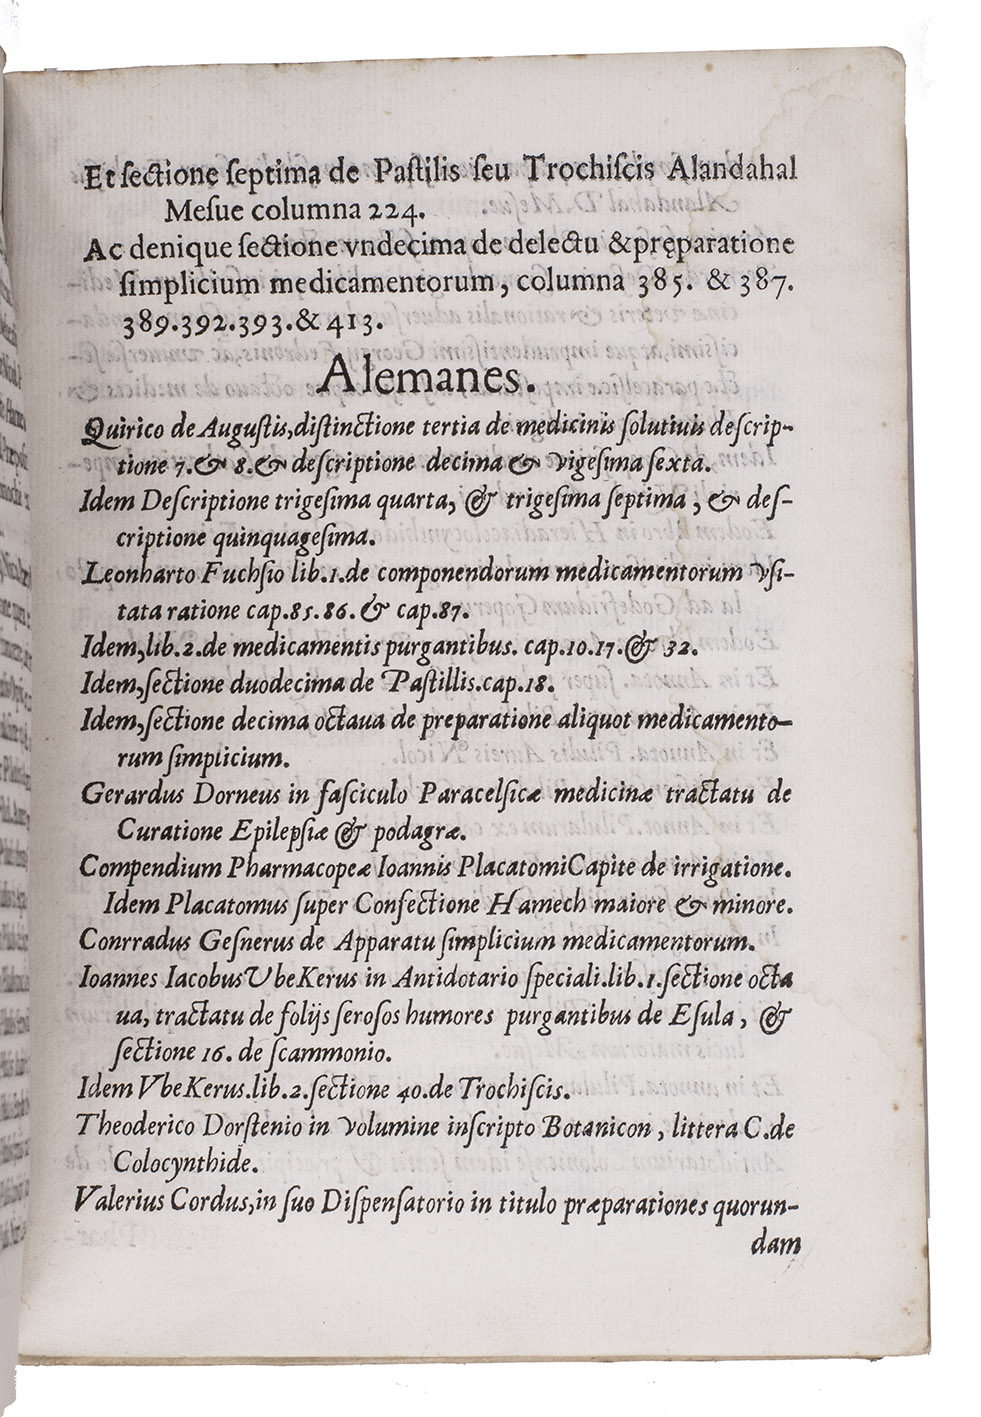 Et ſectione ſeptima de Paſtilis ſeu Trochiſcis Alandahal
Meſue columna 224.
Ac denique ſectione vndecima de delectu & pręparatione
ſimplicium medicamentorum, columna 385. & 387.
389.392.393.& 413.
Alemanes.
Quirico de Auguſtis,diſtinctione tertia de medicinis ſolutiuis deſcrip-
tione 7.& 8.& deſcriptione decima & vigeſima ſexta.
Idem Deſcriptione trigeſima quarta, & trigeſima ſeptima , & deſ-
criptione quinquageſima.
Leonharto Fuchſio lib.1.de componendorum medicamentorum vſi-
tata ratione cap.85.86.& cap.87.
Idem,lib.2.de medicamentis purgantibus. cap.10.17.& 32.
Idem,ſectione duodecima de Paſtillis.cap.18.
Idem,ſectione decima octaua de preparatione aliquot medicamento-
rum ſimplicium.
Gerardus Dorneus in faſciculo Paracelſicæ medicinæ tractatu de
Curatione Epilepſiæ & podagræ.
Compendium Pharmacopeæ Ioannis Placatomi Capite de irrigatione.
Idem Placatomus ſuper Confectione Hamech maiore & minore.
Conrradus Geſnerus de Apparatu ſimplicium medicamentorum.
Ioannes Iacobus VbeKerus in Antidotario ſpeciali.lib.1.ſectione octa
ua, tractatu de folijs ſeroſos humores purgantibus de Eſula , &
ſectione 16. de ſcammonio.
Idem VbeKerus.lib.2.ſectione 40.de Trochiſcis.
Theoderico Dorſtenio in volumine inſcripto Botanicon , littera C.de
Colocynthide.
Valerius Cordus,in ſuo Diſpenſatorio in titulo præparationes quorun-
dam